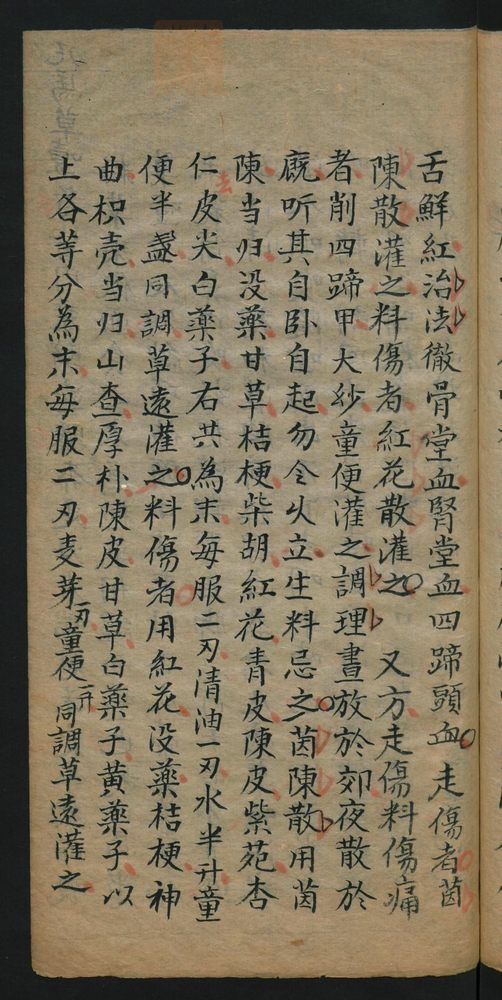 舌鮮紅治法徹骨堂血腎堂血四蹄頭血走傷者茵
陳散灌之料傷者紅花散灌之又方走傷料傷痛
者削四蹄甲大紗童便灌之調理晝放於郊夜散於
廐听其自卧自起勿令久立生料忌之茵陳散用茵
陳当归没藥甘草桔梗柴胡紅花青皮陳皮紫苑杏
仁皮尖白藥子右共為末每服二刃清油一刃水半升童
便半盞同調草遠灌之料傷者用紅花没藥桔梗神
曲枳壳当归山查厚朴陳皮甘草白藥子黄藥子以
上各等分為末每服二刃麦芽一刃童便一升同調草遠灌之